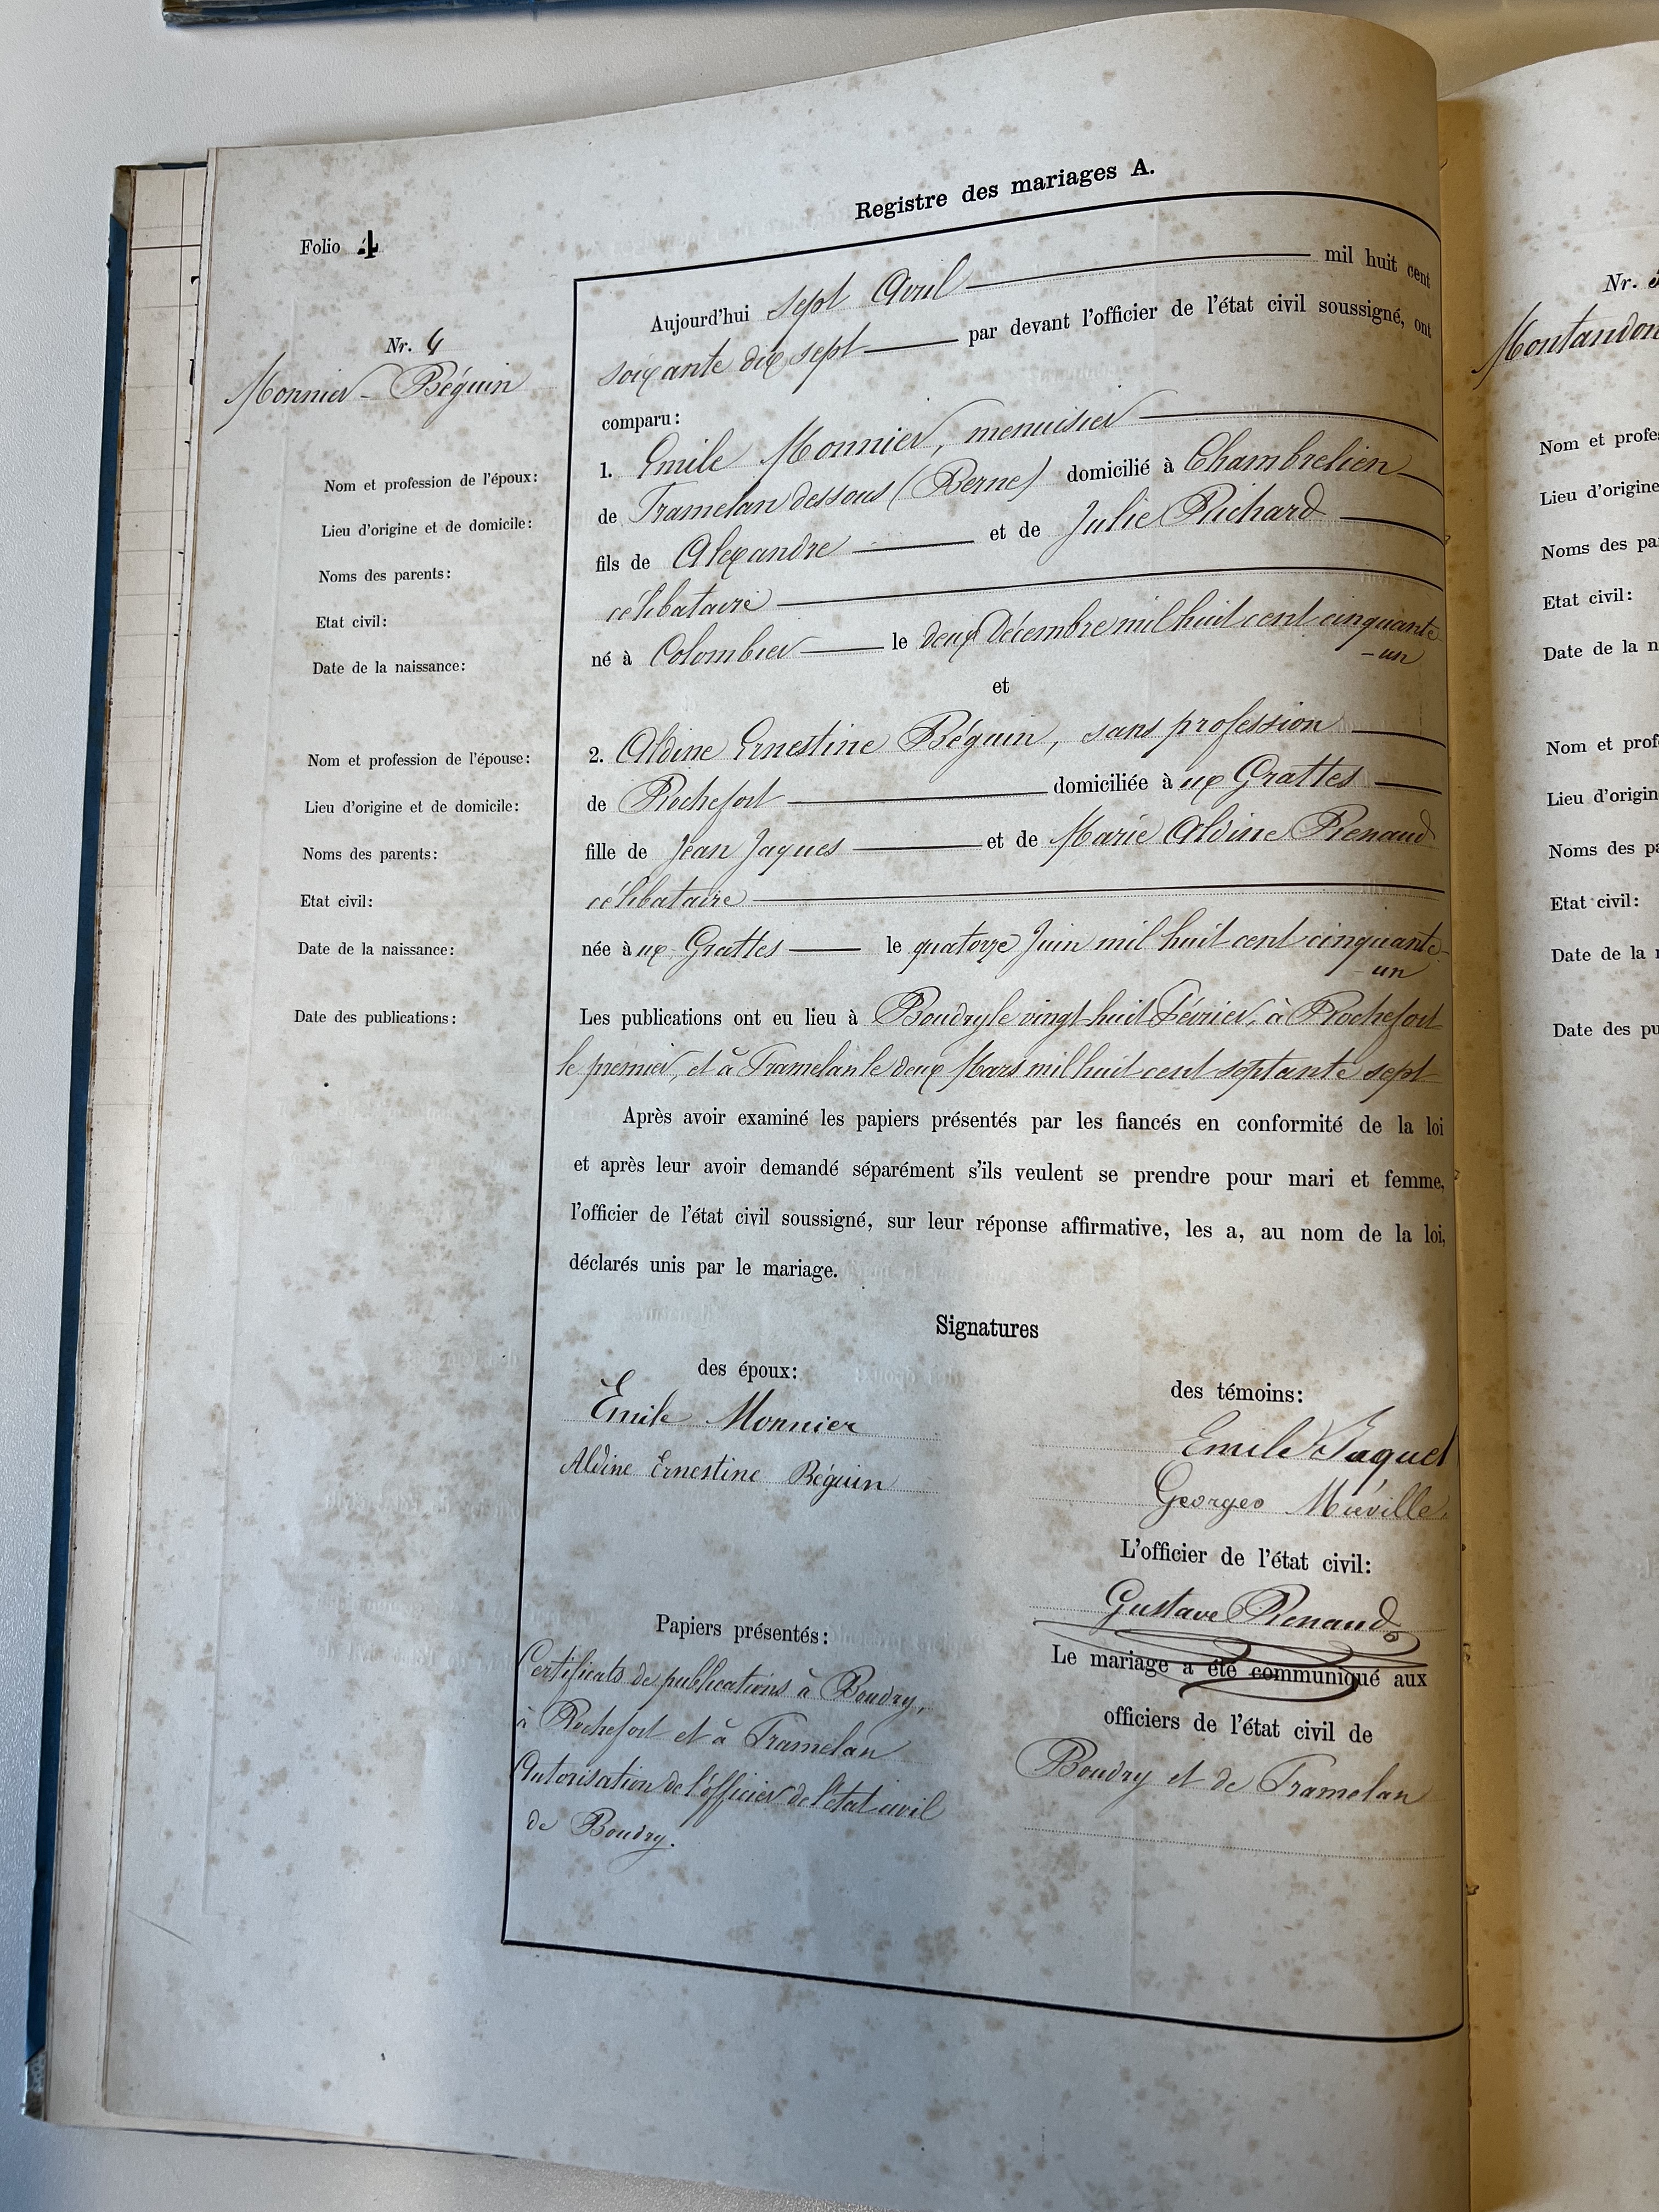 Registre des mariages A.
Folio 4
Nr. 4
Monnier - Béguin
Aujourd'hui sept Avril mil huit cent
soixante dix sept par devant l'officier de l'état civil soussigné, ont
comparu:
Nom et profession de l'époux: 1. Emile Monnier, menuisier
Lieu d'origine et de domicile: de Tramelan dessous (Berne) domicilié à Chambrelien
Noms des parents: fils de Alexandre et de Julie Richard
Etat civil: célibataire
Date de la naissance: né à Colombier le deux Décembre mil huit cent cinquante
- un
et
Nom et profession de l'épouse: 2. Aldine Ernestine Béguin, sans profession
Lieu d'origine et de domicile: de Rochefort domiciliée à ux Grattes
Noms des parents: fille de Jean Jaques et de Marie Aldine Renaud
Etat civil: célibataire
Date de la naissance: née à ux Grattes le quatorze Juin mil huit cent cinquante-
- un
Date des publications: Les publications ont eu lieu à Boudry le vingt huit Février, à Rochefort
le premier, et à Tramelan le deux Mars mil huit cent septante sept
Après avoir examiné les papiers présentés par les fiancés en conformité de la loi
et après leur avoir demandé séparément s'ils veulent se prendre pour mari et femme,
l'officier de l'état civil soussigné, sur leur réponse affirmative, les a, au nom de la loi,
déclarés unis par le mariage.
Signatures
des époux:
Emile Monnier
Aldine Ernestine Béguin
des témoins:
Emile Jaquet
Georges Miéville
L'officier de l'état civil:
Gustave Renaud
Le mariage a été communiqué aux
officiers de l'état civil de
Boudry et de Tramelan
Papiers présentés:
Certificats de publications à Boudry,
à Rochefort et à Tramelan
Autorisation de l'officier de l'état civil
de Boudry.
Nr.
Montandon
Nom et profes
Lieu d'origine
Noms des pa
Etat civil:
Date de la n
Nom et prof
Lieu d'origin
Noms des pa
Etat civil:
Date de la
Date des pu